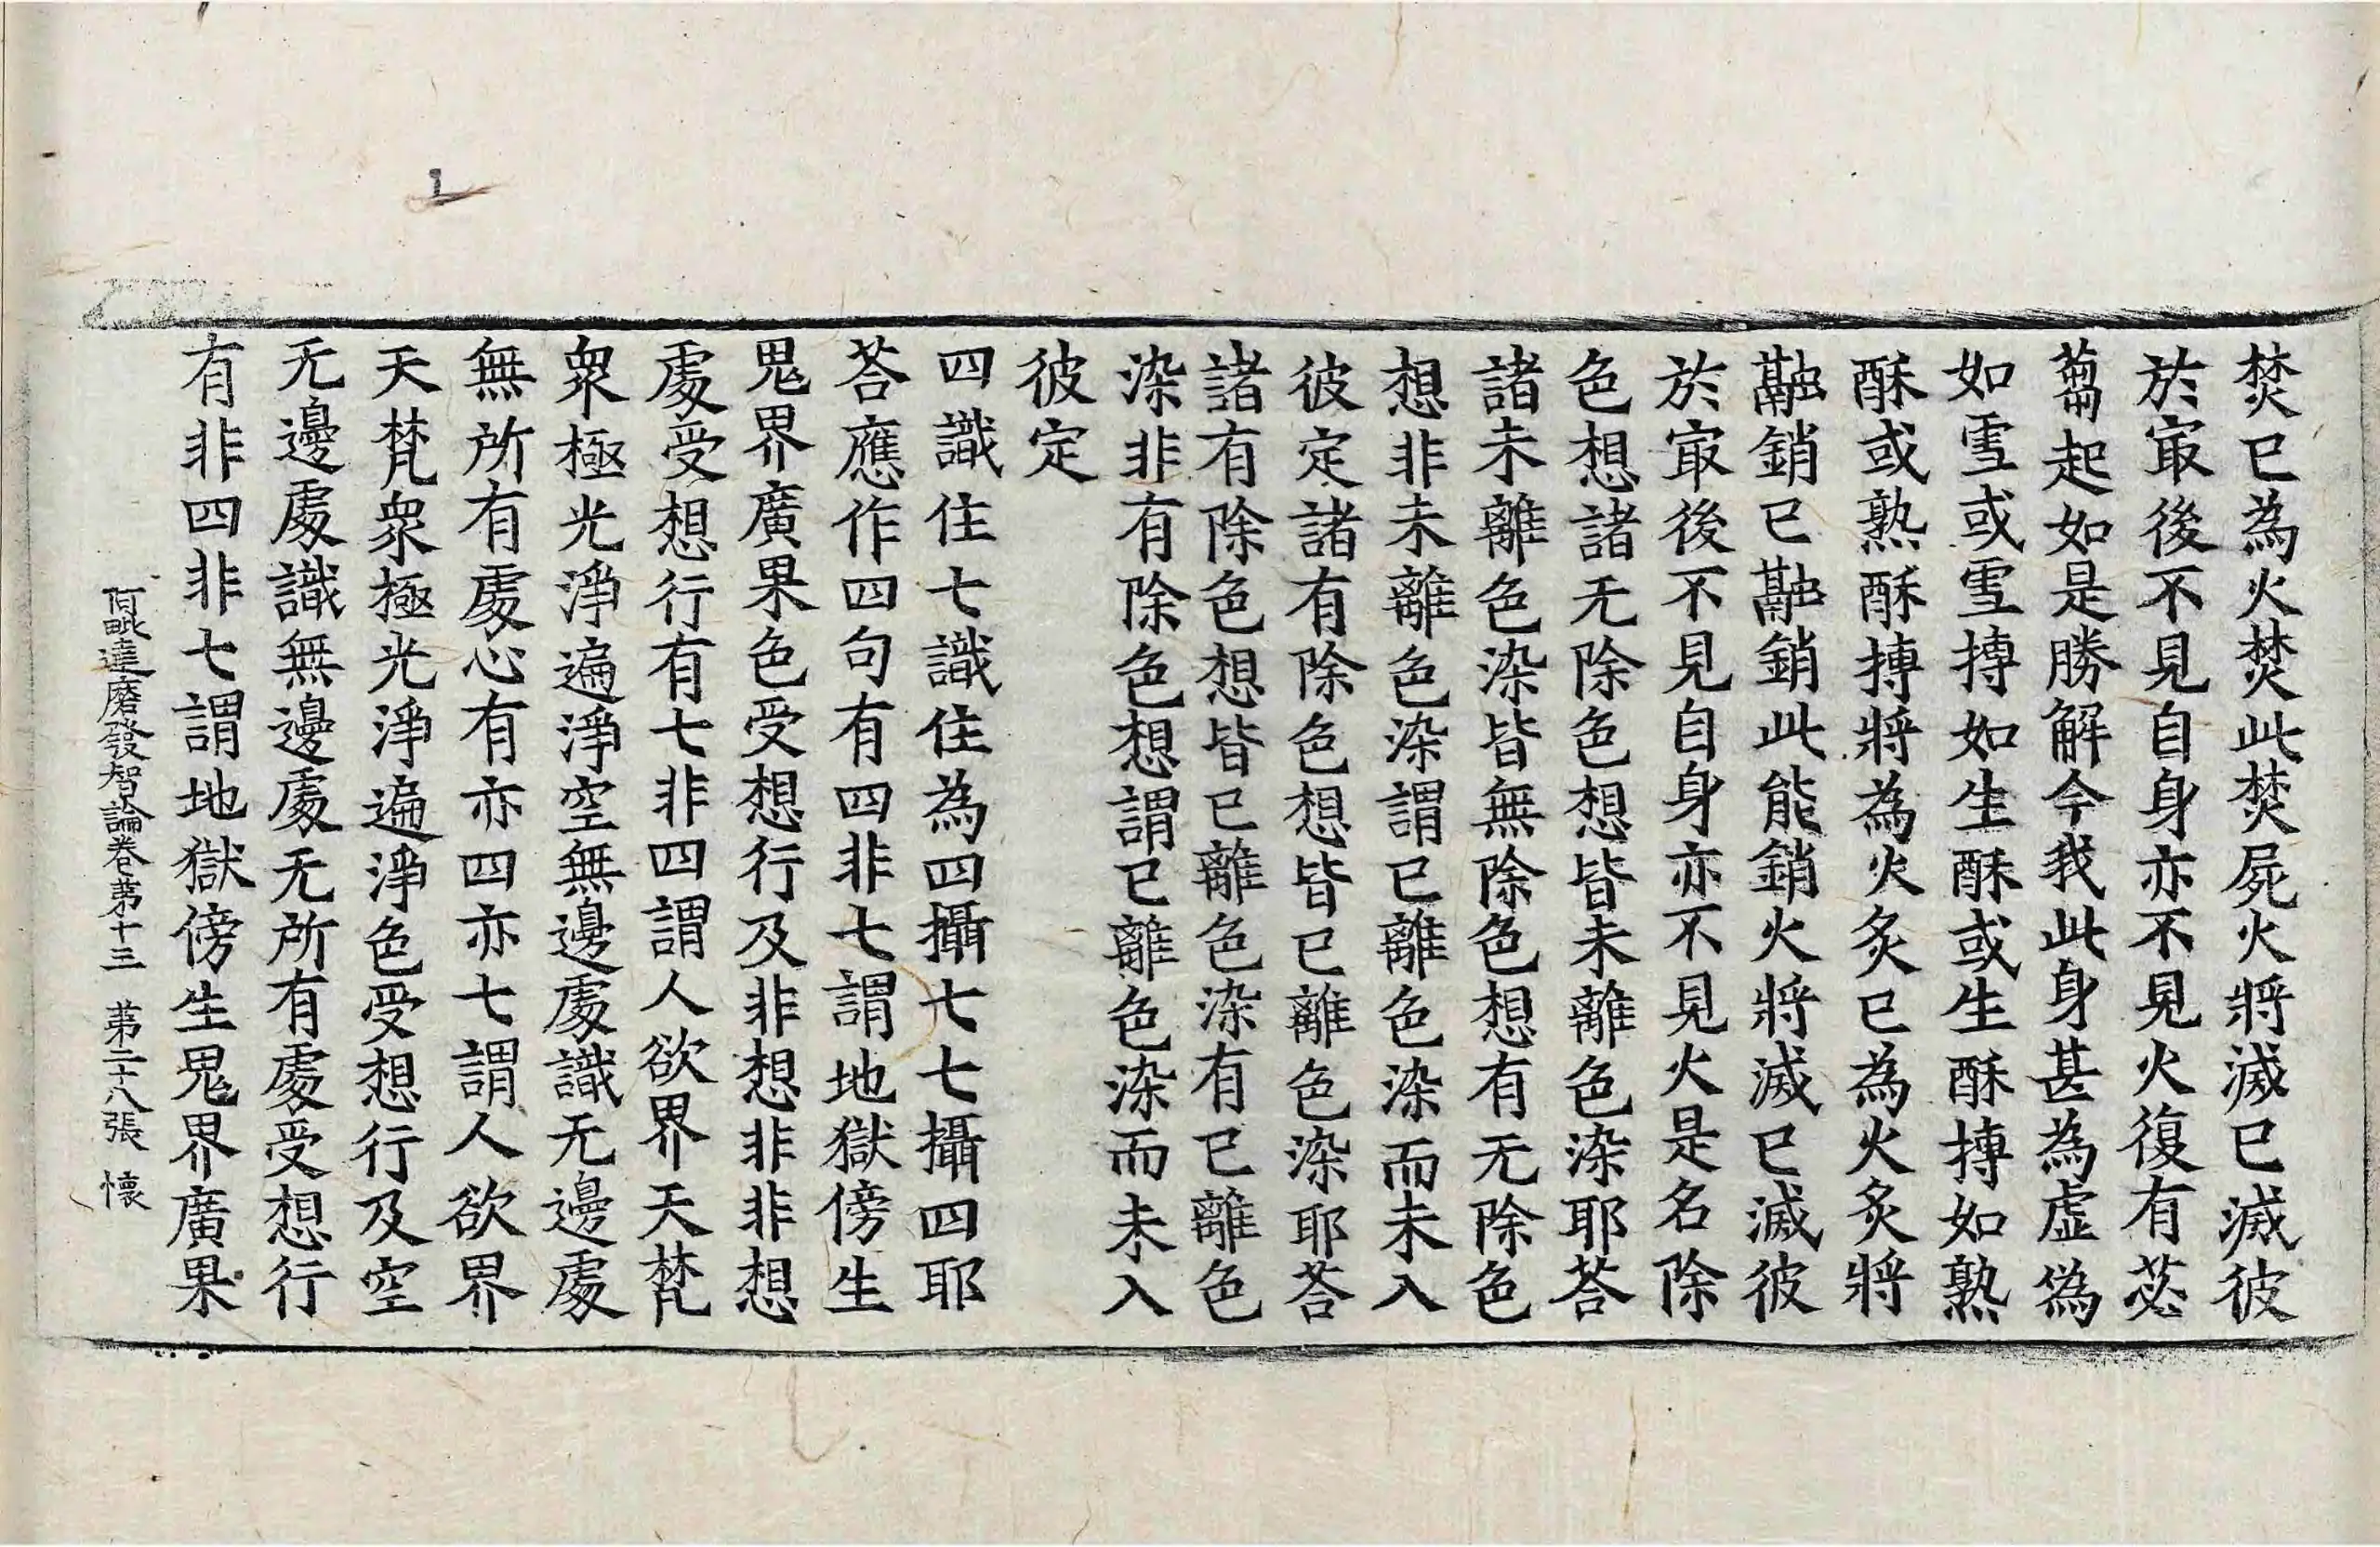 焚已為火焚此焚屍火將滅已滅彼
於㝡後不見自身亦不見火復有苾
蒭起如是勝解今我此身甚為虛偽
如雪或雪摶如生酥或生酥摶如熟
酥或熟酥摶將為火炙已為火炙將
融銷已融銷此能銷火將滅已滅彼
於㝡後不見自身亦不見火是名除
色想諸无除色想皆未離色染耶荅
諸未離色染皆無除色想有无除色
想非未離色染謂已離色染而未入
彼定諸有除色想皆已離色染耶荅
諸有除色想皆已離色染有已離色
染非有除色想謂已離色染而未入
彼定
四識住七識住為四攝七七攝四耶
荅應作四句有四非七謂地獄傍生
鬼界廣果色受想行及非想非非想
處受想行有七非四謂人欲界天梵
衆極光淨遍淨空無邊處識无邊處
無所有處心有亦四亦七謂人欲界
天梵衆極光淨遍淨色受想行及空
无邊處識無邊處无所有處受想行
有非四非七謂地獄傍生鬼界廣果
阿毗達磨發智論卷第十三 第二十八張 懷
1